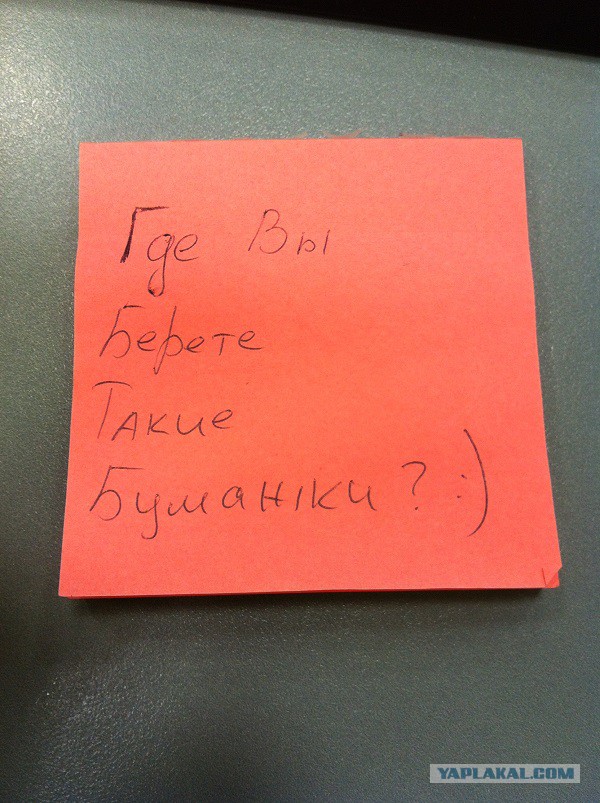 Где Вы
Берете
Такие
Буманіки? :)
YAPLAKAL.COM